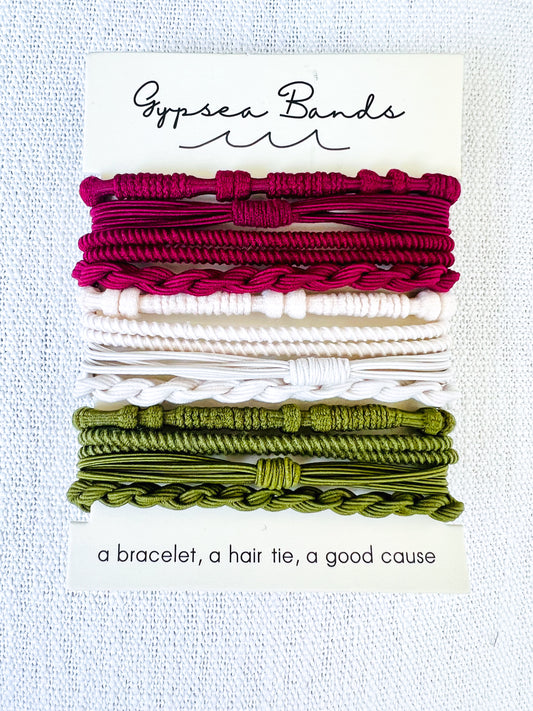 Gypsea Bands
a bracelet, a hair tie, a good cause